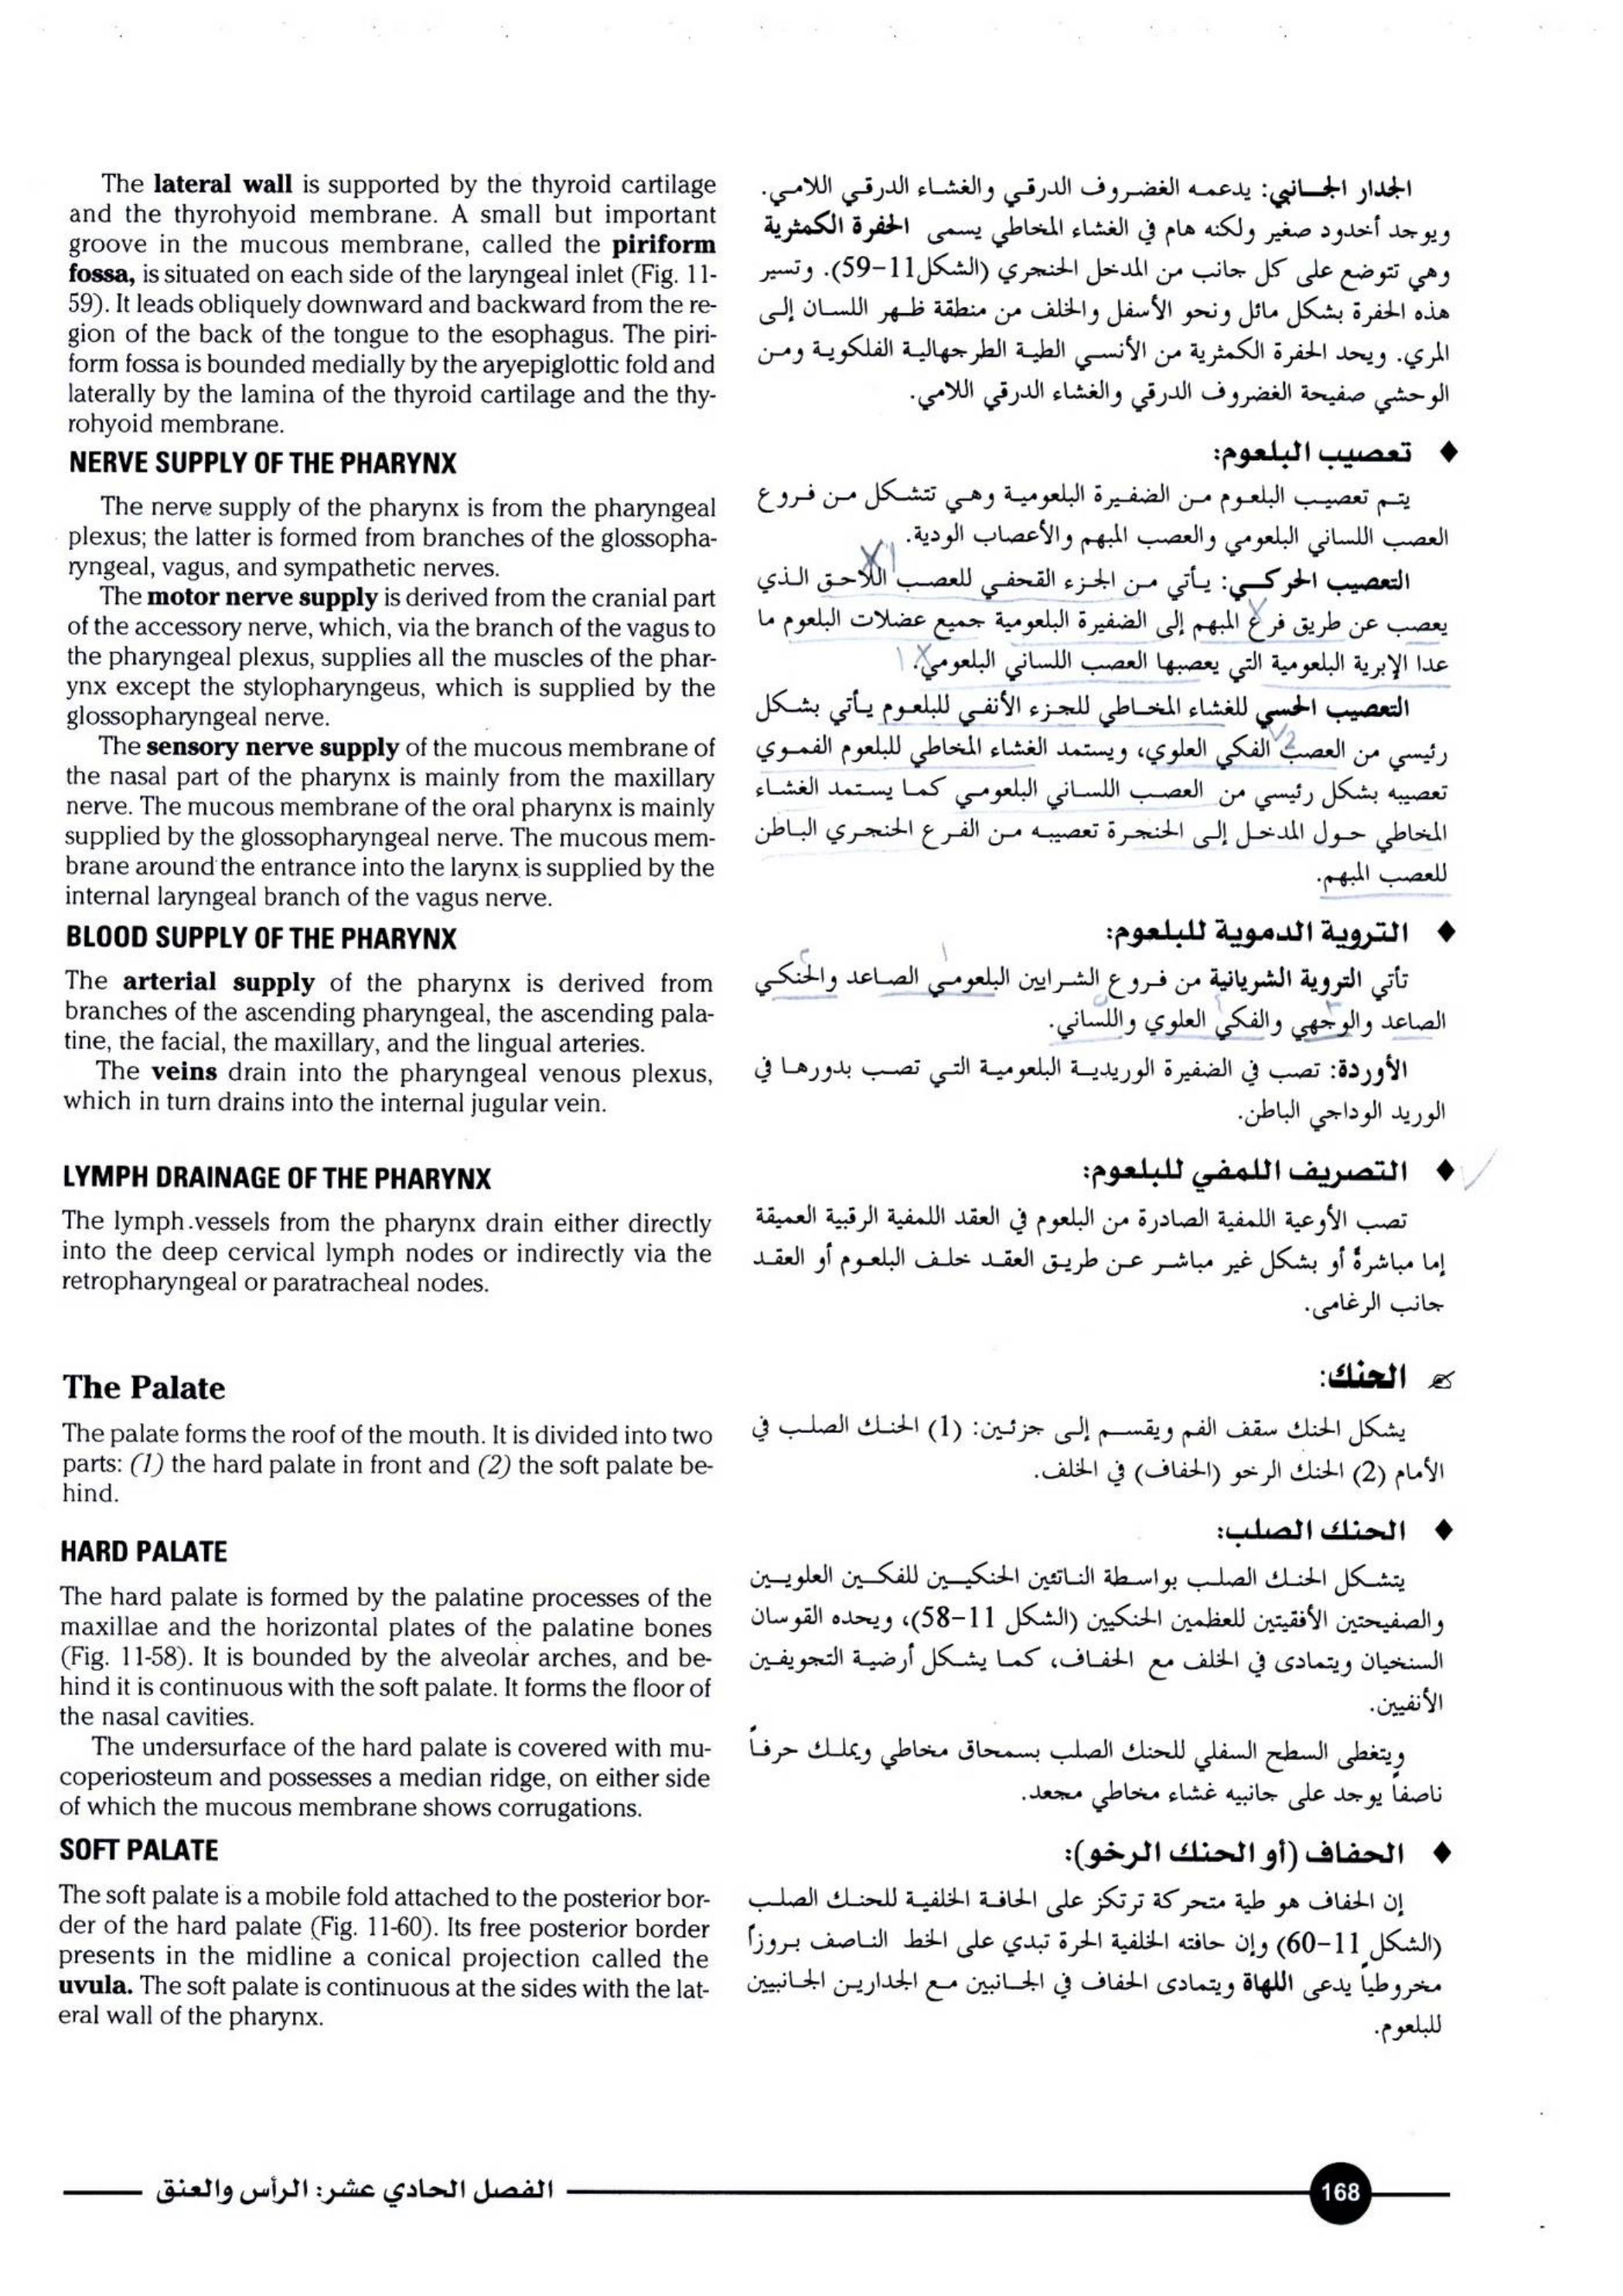 The lateral wall is supported by the thyroid cartilage
and the thyrohyoid membrane. A small but important
groove in the mucous membrane, called the piriform
fossa, is situated on each side of the laryngeal inlet (Fig. 11-
59). It leads obliquely downward and backward from the re-
gion of the back of the tongue to the esophagus. The piri-
form fossa is bounded medially by the aryepiglottic fold and
laterally by the lamina of the thyroid cartilage and the thy-
rohyoid membrane.
NERVE SUPPLY OF THE PHARYNX
The nerve supply of the pharynx is from the pharyngeal
plexus; the latter is formed from branches of the glossopha-
ryngeal, vagus, and sympathetic nerves.
The motor nerve supply is derived from the cranial part
of the accessory nerve, which, via the branch of the vagus to
the pharyngeal plexus, supplies all the muscles of the phar-
ynx except the stylopharyngeus, which is supplied by the
glossopharyngeal nerve.
The sensory nerve supply of the mucous membrane of
the nasal part of the pharynx is mainly from the maxillary
nerve. The mucous membrane of the oral pharynx is mainly
supplied by the glossopharyngeal nerve. The mucous mem-
brane around the entrance into the larynx is supplied by the
internal laryngeal branch of the vagus nerve.
BLOOD SUPPLY OF THE PHARYNX
The arterial supply of the pharynx is derived from
branches of the ascending pharyngeal, the ascending pala-
tine, the facial, the maxillary, and the lingual arteries.
The veins drain into the pharyngeal venous plexus,
which in turn drains into the internal jugular vein.
LYMPH DRAINAGE OF THE PHARYNX
The lymph vessels from the pharynx drain either directly
into the deep cervical lymph nodes or indirectly via the
retropharyngeal or paratracheal nodes.
The Palate
The palate forms the roof of the mouth. It is divided into two
parts: (1) the hard palate in front and (2) the soft palate be-
hind.
HARD PALATE
The hard palate is formed by the palatine processes of the
maxillae and the horizontal plates of the palatine bones
(Fig. 11-58). It is bounded by the alveolar arches, and be-
hind it is continuous with the soft palate. It forms the floor of
the nasal cavities.
The undersurface of the hard palate is covered with mu-
coperiosteum and possesses a median ridge, on either side
of which the mucous membrane shows corrugations.
SOFT PALATE
The soft palate is a mobile fold attached to the posterior bor-
der of the hard palate (Fig. 11-60). Its free posterior border
presents in the midline a conical projection called the
uvula. The soft palate is continuous at the sides with the lat-
eral wall of the pharynx.
الجدار الجانبي: يدعمه الغضروف الدرقي والغشاء الدرقي اللامي.
ويوجد أخدود صغير ولكنه هام في الغشاء المخاطي يسمى الحفرة الكمثرية
وهي تتوضع على كل جانب من المدخل الحنجري (الشكل11-59). وتسير
هذه الحفرة بشكل مائل ونحو الأسفل والخلف من منطقة ظهر اللسان إلى
المري. ويحد الحفرة الكمثرية من الأنسي الطية الطرجهالية الفلكوية ومن
الوحشي صفيحة الغضروف الدرقي والغشاء الدرقي اللامي.
♦ تعصيب البلعوم:
يتم تعصيب البلعوم من الضفيرة البلعومية وهي تتشكل من فروع
العصب اللساني البلعومي والعصب المبهم والأعصاب الودية.
التعصيب الحركي: يأتي من الجزء القحفي للعصب اللاحق الذي
يعصب عن طريق فرع المبهم إلى الضفيرة البلعومية جميع عضلات البلعوم ما
عدا الإبرية البلعومية التي يعصبها العصب اللساني البلعومي.
التعصيب الحسي للغشاء المخاطي للجزء الأنفي للبلعوم يأتي بشكل
رئيسي من العصب الفكي العلوي، ويستمد الغشاء المخاطي للبلعوم الفموي
تعصيبه بشكل رئيسي من العصب اللساني البلعومي كما يستمد الغشاء
المخاطي حول المدخل إلى الحنجرة تعصيبه من الفرع الحنجري الباطن
للعصب المبهم.
♦ التروية الدموية للبلعوم:
تأتي التروية الشريانية من فروع الشرايين البلعومي الصاعد والحنكي
الصاعد والوجهي والفكي العلوي واللساني.
الأوردة: تصب في الضفيرة الوريدية البلعومية التي تصب بدورها في
الوريد الوداجي الباطن.
♦ التصريف اللمفي للبلعوم:
تصب الأوعية اللمفية الصادرة من البلعوم في العقد اللمفية الرقبية العميقة
إما مباشرةً أو بشكل غير مباشر عن طريق العقد خلف البلعوم أو العقد
جانب الرغامى.
الحنك:
يشكل الحنك سقف الفم ويقسم إلى جزئين: (1) الحنك الصلب في
الأمام (2) الحنك الرخو (الحفاف) في الخلف.
♦ الحنك الصلب:
يتشكل الحنك الصلب بواسطة الناتئين الحنكيين للفكين العلويين
والصفيحتين الأفقيتين للعظمين الحنكيين (الشكل 11-58)، ويحده القوسان
السنخيان ويتمادى في الخلف مع الحفاف، كما يشكل أرضية التجويفين
الأنفيين.
ويتغطى السطح السفلي للحنك الصلب بسمحاق مخاطي ويملك حرفاً
ناصفاً يوجد على جانبيه غشاء مخاطي مجعد.
♦ الحفاف (أو الحنك الرخو):
إن الحفاف هو طية متحركة ترتكز على الحافة الخلفية للحنك الصلب
(الشكل 11-60) وإن حافته الخلفية الحرة تبدي على الخط الناصف بروزاً
مخروطياً يدعى اللهاة ويتمادى الحفاف في الجانبين مع الجدارين الجانبيين
للبلعوم.
168
الفصل الحادي عشر: الرأس والعنق